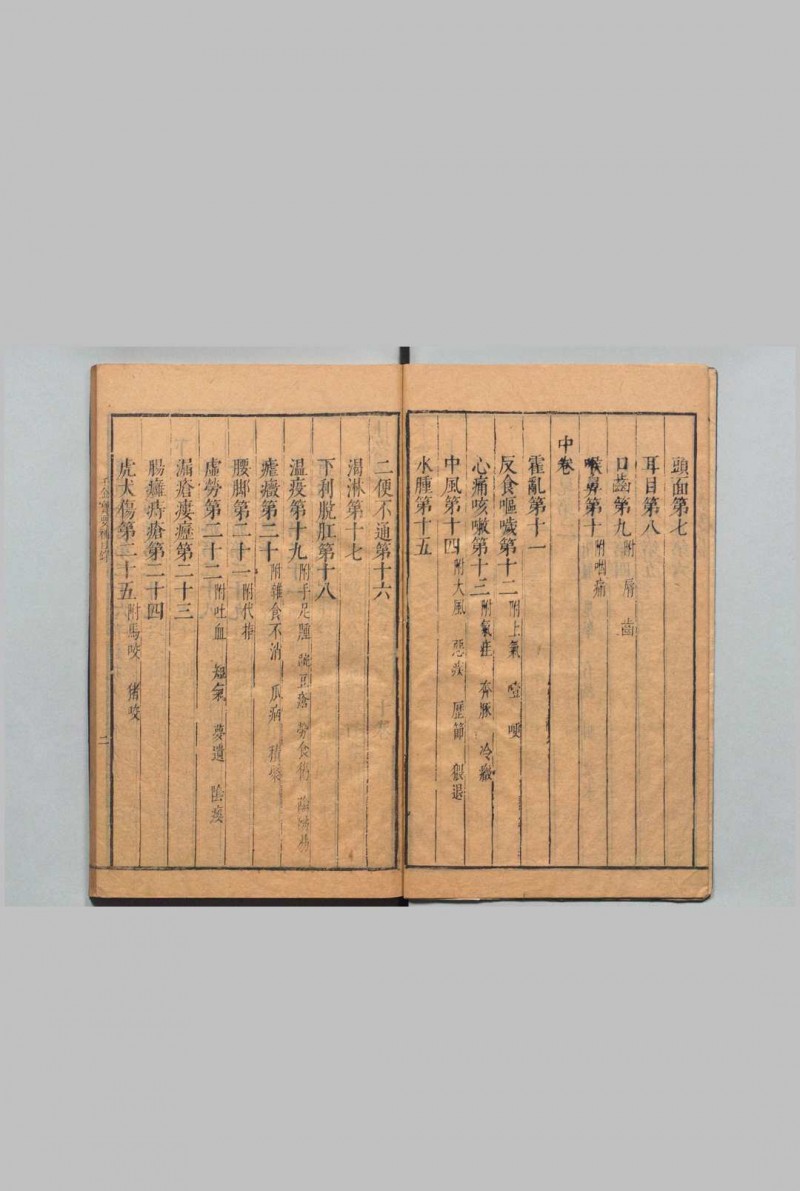 頭面第七
耳目第八
口齒第九 附唇 齒
喉鼻第十 附咽痛
中卷
霍亂第十一
反食嘔噦第十二 附上氣 噎 哽
心痛咳嗽第十三 附氣疰 奔豚 冷癥
中風第十四 附大風 惡疾 歷節 猥退
水腫第十五
二便不通第十六
渴淋第十七
下利脫肛第十八
溫疫第十九 附手足腫 豌豆瘡 勞食復
瘧癥第二十 附雜食不消 瓜病
腰脚第二十一 附代指
虛勞第二十二 附吐血 短氣 夢遺 陰痿
漏瘡瘻癧第二十三
腸癰痔瘡第二十四
虎犬傷第二十五 附馬咬 猪咬
千金寶要補目錄
二